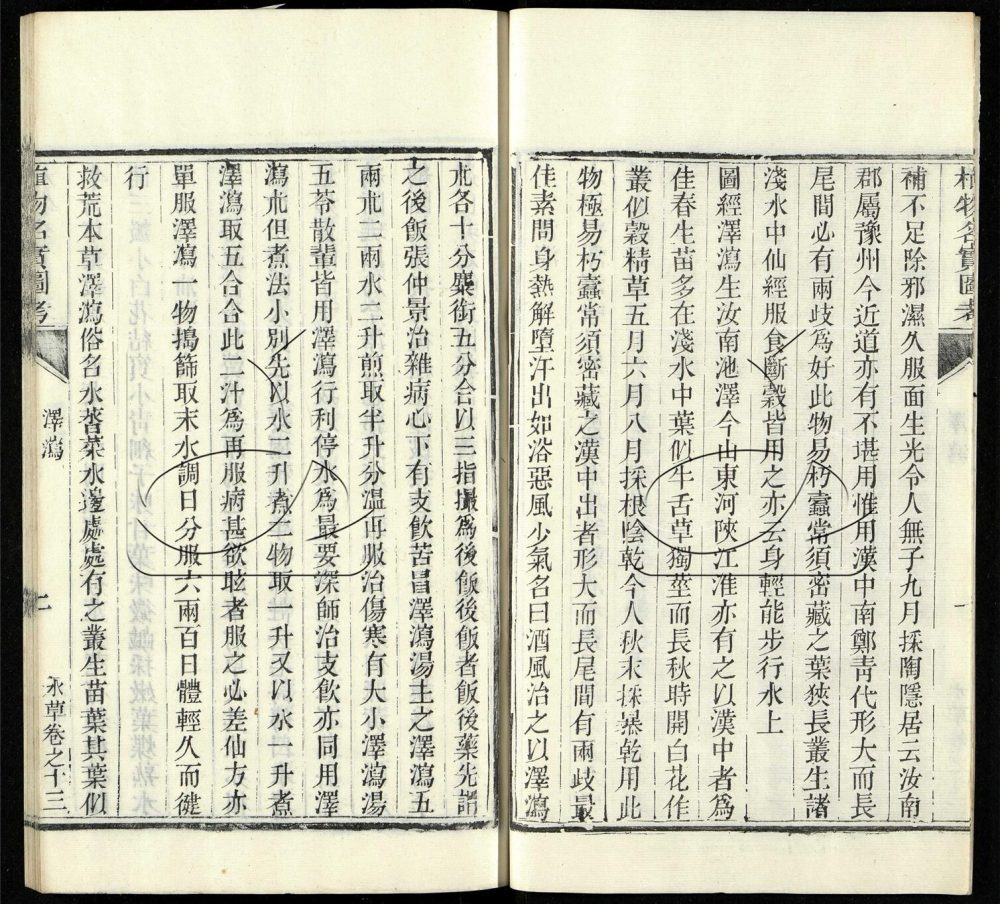 植物名實圖考
補不足除邪濕久服面生光令人無子九月採陶隱居云汝南
郡屬豫州今近道亦有不堪用惟用漢中南鄭靑代形大而長
尾間必有兩歧爲好此物易朽蠹常須密藏之葉狹長叢生諸
淺水中仙經服食斷穀皆用之亦云身輕能步行水上
圖經澤瀉生汝南池澤今山東河陝江淮亦有之以漢中者爲
佳春生苗多在淺水中葉似牛舌草獨莖而長秋時開白花作
叢似穀精草五月六月八月採根陰乾今人秋末採暴乾用此
物極易朽蠹常須密藏之漢中出者形大而長尾間有兩歧最
佳素問身熱解墮汗出如浴惡風少氣名曰酒風治之以澤瀉
朮各十分麋銜五分合以三指撮爲後飯後飯者飯後藥先謂
之後飯張仲景治雜病心下有支飮苦冒澤瀉湯主之澤瀉五
兩朮二兩水二升煎取半升分溫再服治傷寒有大小澤瀉湯
五苓散輩皆用澤瀉行利停水爲最要深師治支飮亦同用澤
瀉朮但煮法小別先以水二升煮二物取一升又以水一升煮
澤瀉取五合合此二汁爲再服病甚欲眩者服之必差仙方亦
單服澤瀉一物搗篩取末水調日分服六兩百日體輕久而健
行
救荒本草澤瀉俗名水䓗菜水邊處處有之叢生苗葉其葉似
植物名實圖考
澤瀉
二
水草卷之十三